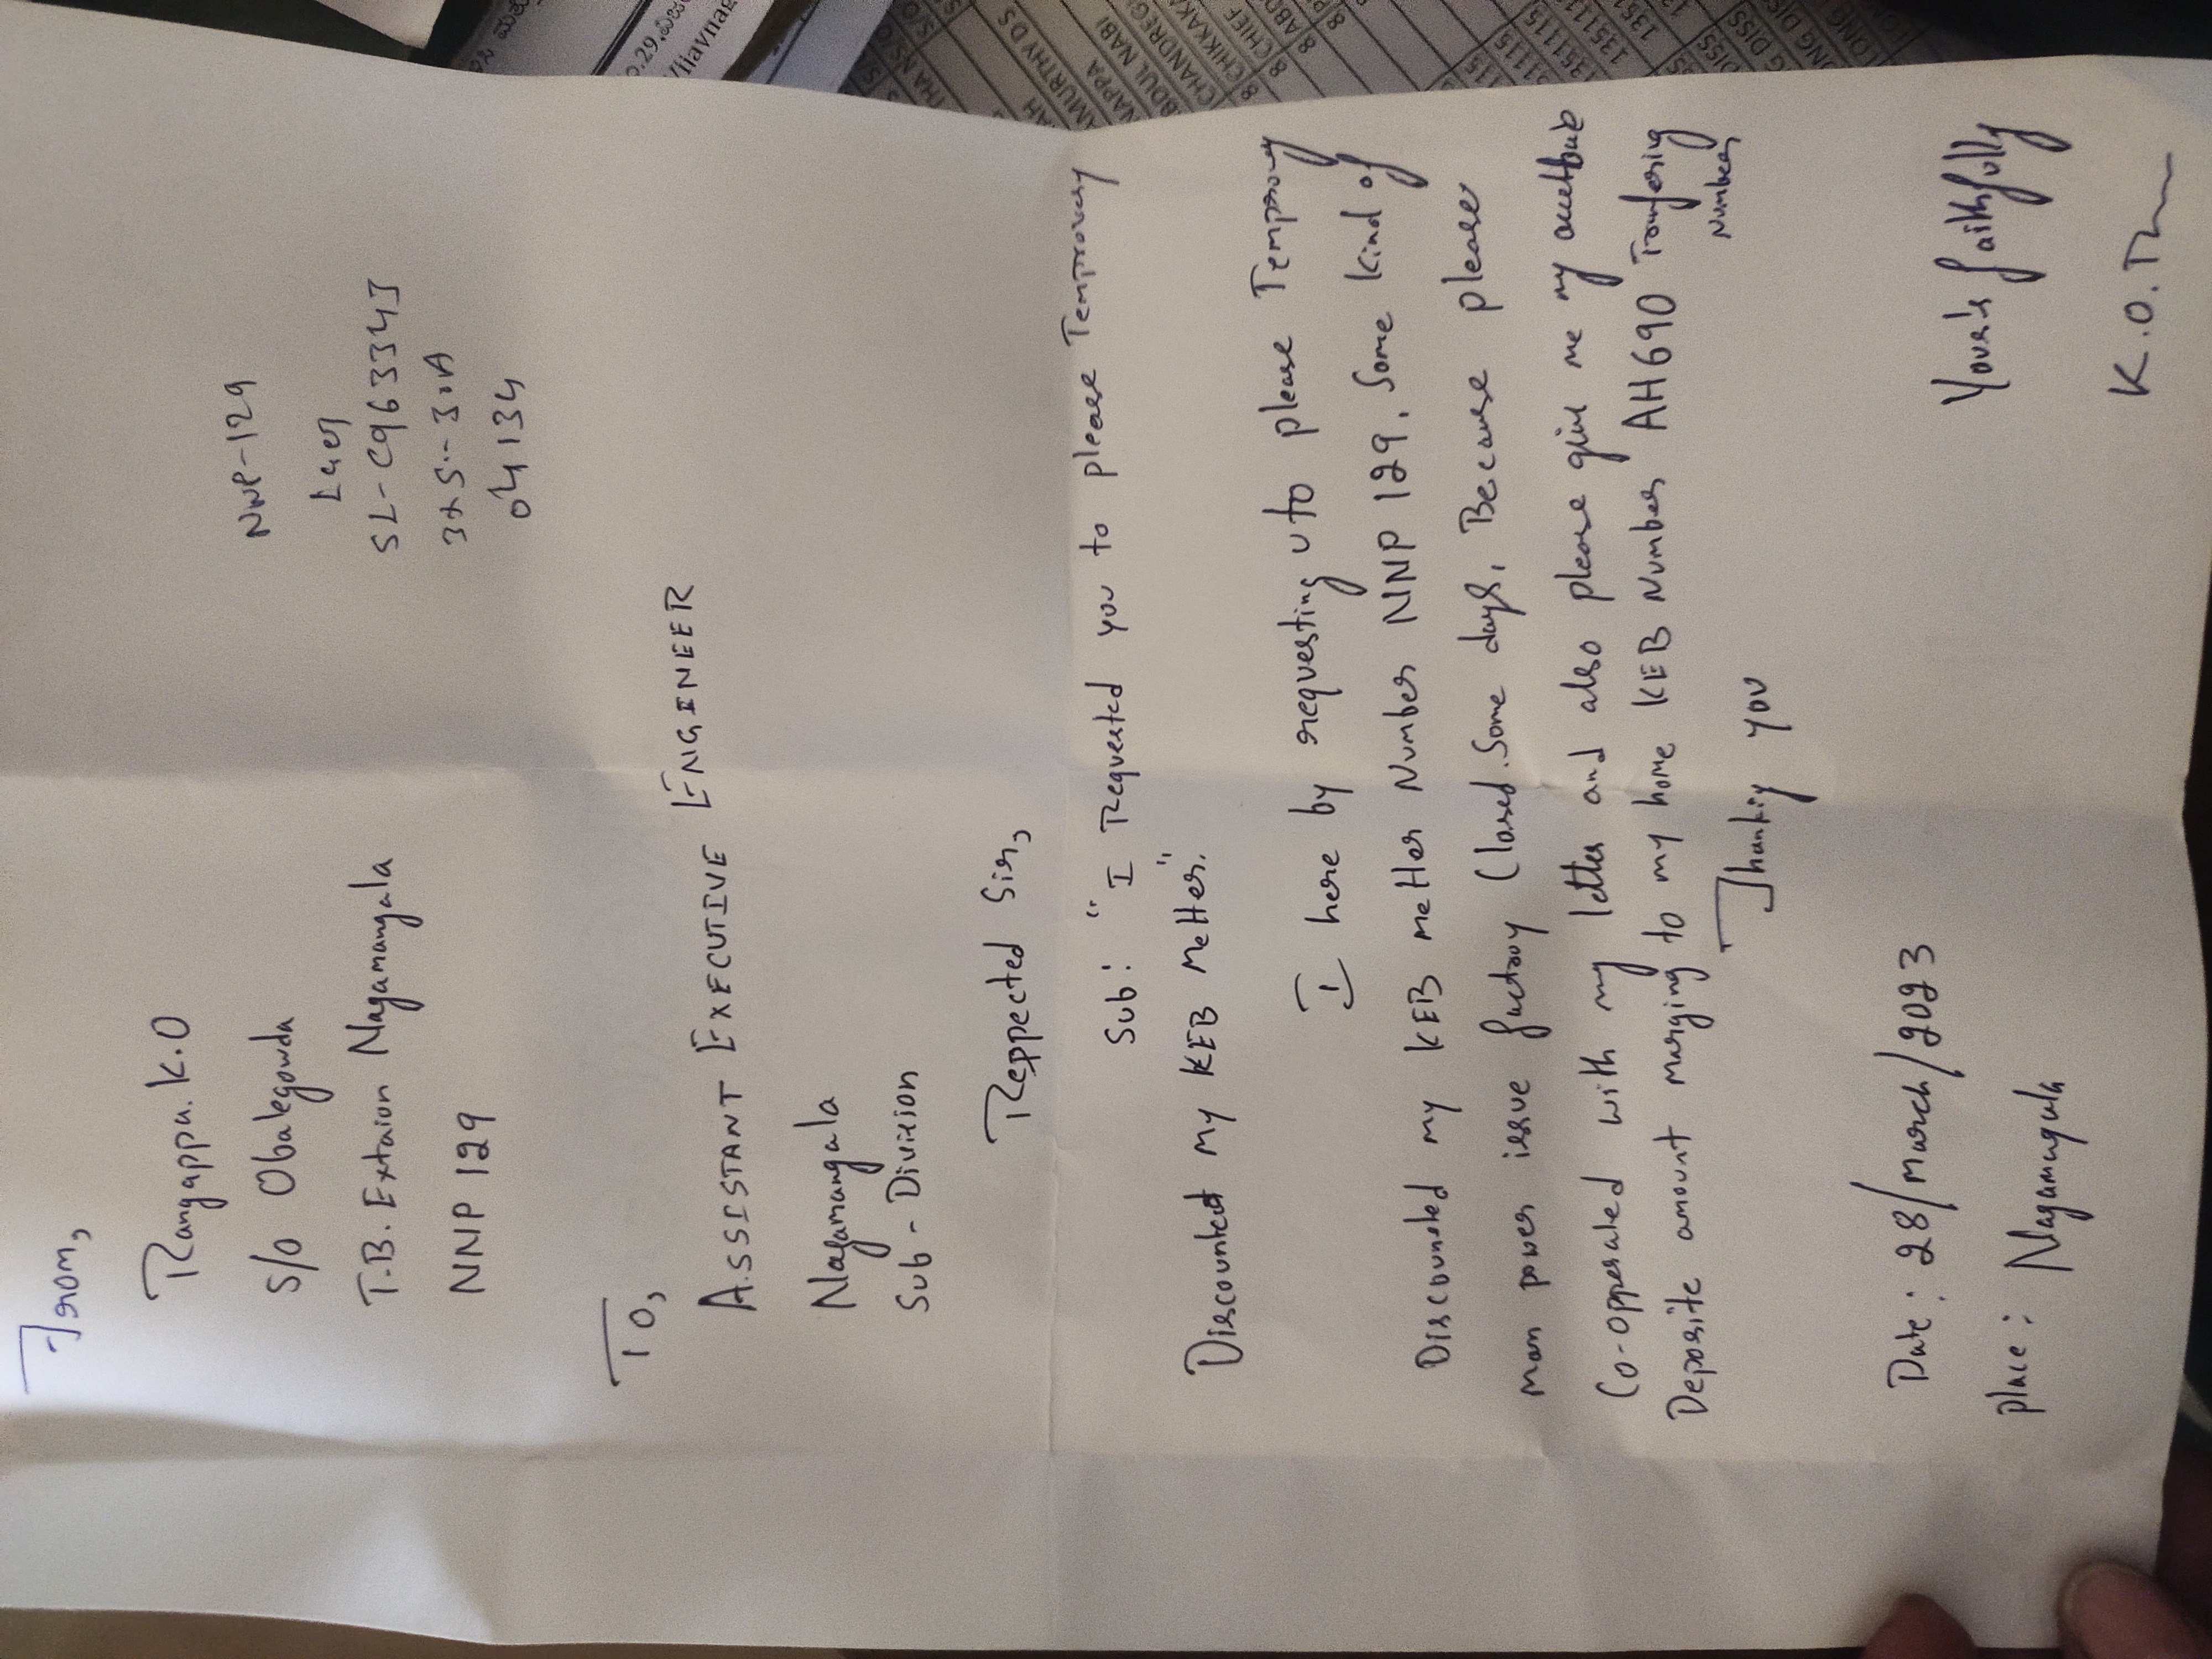 From,
Rangappa. K.O
S/o Obalegowda
T.B. Extaion Nagamangala
NNP 129
NNP-129
L4en
SL-C9633343
3x5--30A
04134
To,
ASSISTANT EXECUTIVE ENGINEER
Nagamangala
Sub - Division
Reppected Sir,
Sub: "I Requested you to please Temprorary
Discounted my KEB Metter".
I here by requesting u to please Temprory
Discounted my KEB metter Number NNP 129. Some kind of
man power issue factroy Closed. Some days, Because please
Co-opperated with my letter and also please give me my
Deposite amount marging to my home KEB Number AH690 Transfering
Number
Thanking you
Date: 28/march/2023
place: Nagamangala
Your's faithfully
K.O.